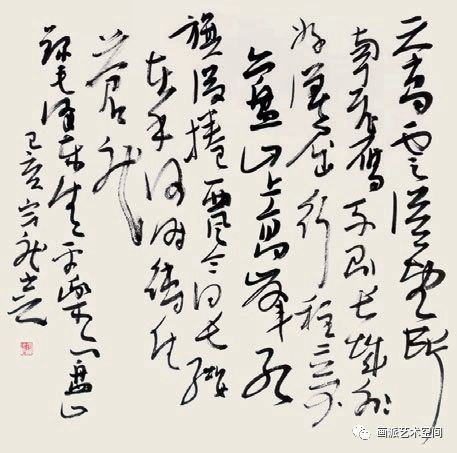 天高雲淡望断
南飛雁不到长城非
好漢屈指行程二万
六盤山上高峰红
旗漫捲西风今日长纓
在手何时缚住
苍龙
录毛泽东清平樂六盤山
己亥
画派艺术空间